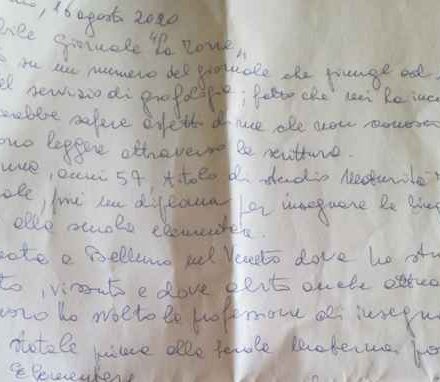 16 agosto 2020
bile Giornale "La Torre"
su un numero del giornale che giunge ad
il servizio di grafologia; fatto che mi ha inc
rebbe sapere aspetti di me che non conosc
ono leggere attraverso la scrittura.
anni 57, titolo di studio Maturità
ale, poi un diploma per insegnare la lin
alla scuola elementare.
ata a Belluno nel Veneto dove ho stu
to, vissuto e dove abito anche attua
voro ho svolto la professione di insegn
statale prima alla scuola materna, po